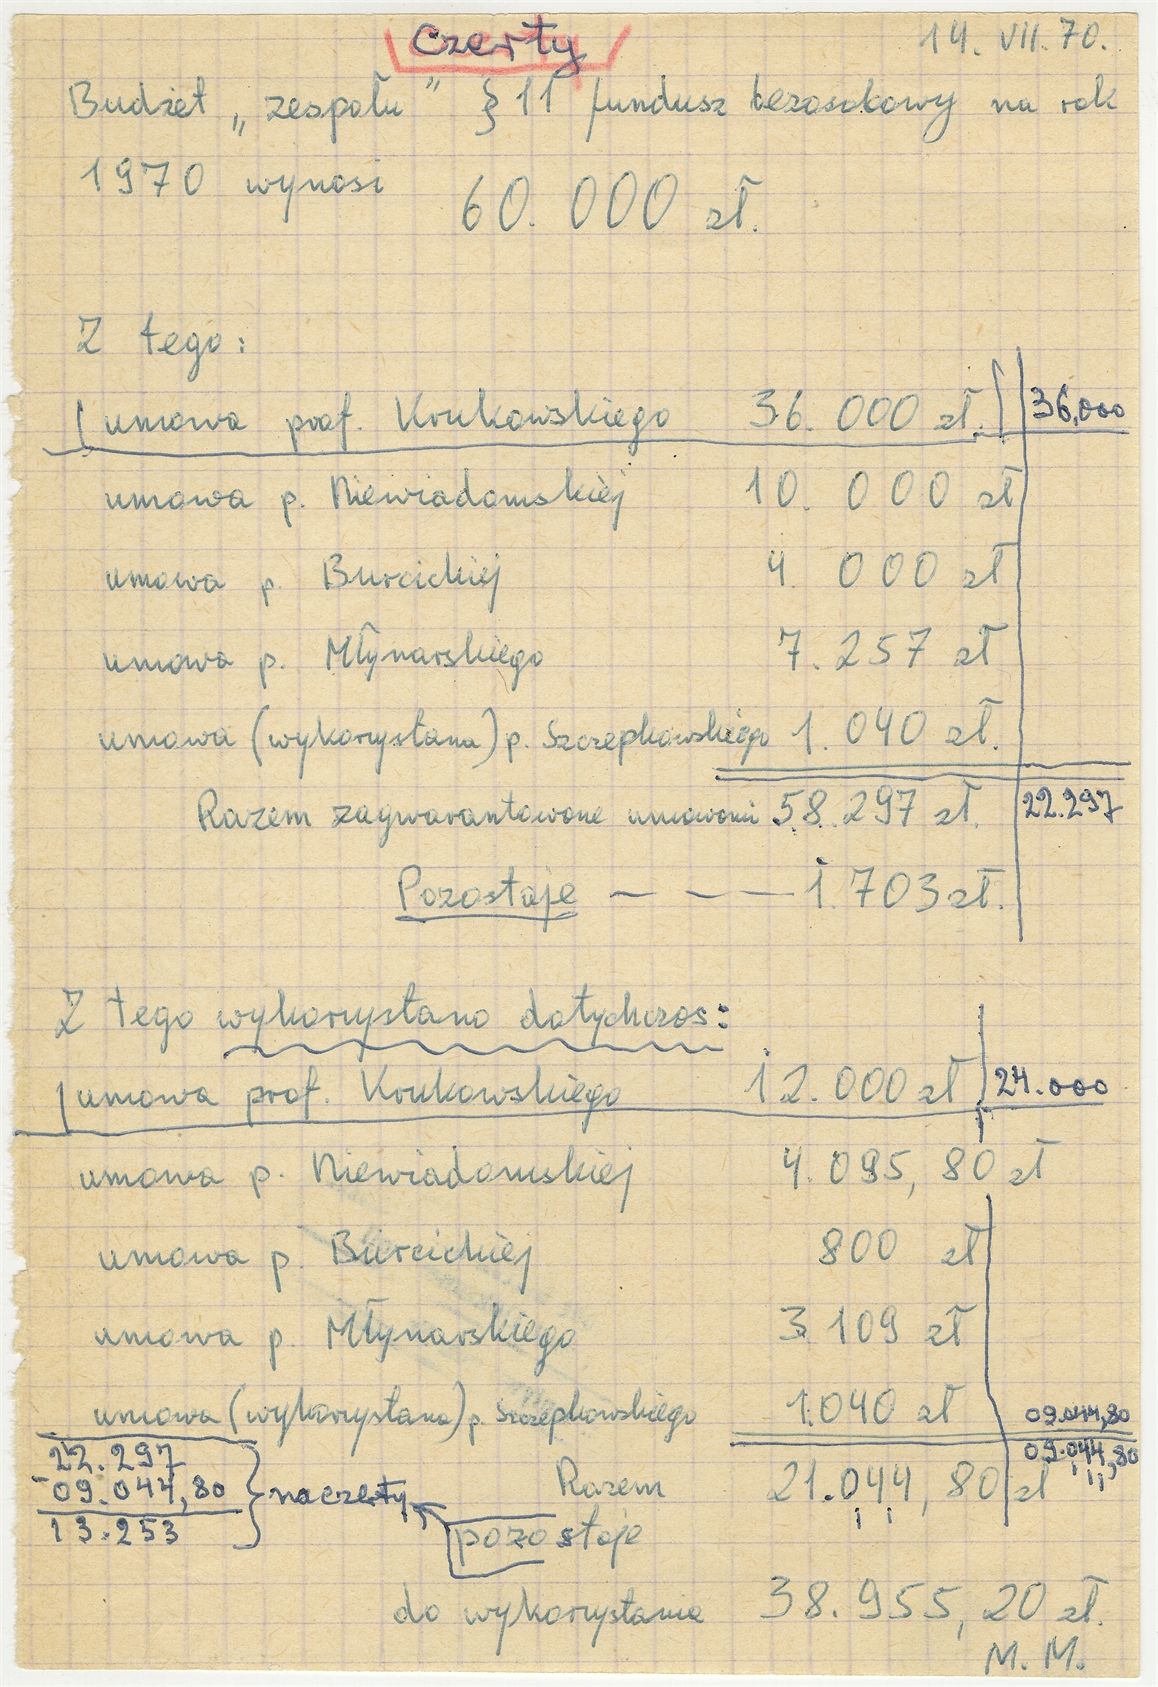 Czerty
14. VII. 70.
Budżet „zespołu" § 11 fundusz bezosobowy na rok
1970 wynosi 60.000 zł.
Z tego:
umowa prof. Krukowskiego 36.000 zł. 36,000
umowa p. Niewiadomskiej 10.000 zł
umowa p. Burcickiej 4.000 zł
umowa p. Młynarskiego 7.257 zł
umowa (wykorzystana) p. Szczepkowskiego 1.040 zł.
Razem zagwarantowone umowami 58.297 zł. 22.297
Pozostaje — — — 1.703 zł.
Z tego wykorzystano dotychczas:
umowa prof. Krukowskiego 12.000 zł 24.000
umowa p. Niewiadomskiej 4.095,80 zł
umowa p. Burcickiej 800 zł
umowa p. Młynarskiego 3.109 zł
umowa (wykorzystana) p. Szczepkowskiego 1.040 zł 09.044,80
22.297
-09.044,80
13.253
na czerty
Razem 21.044,80 zł 09.044,80
pozostaje
do wykorzystania 38.955,20 zł.
M. M.